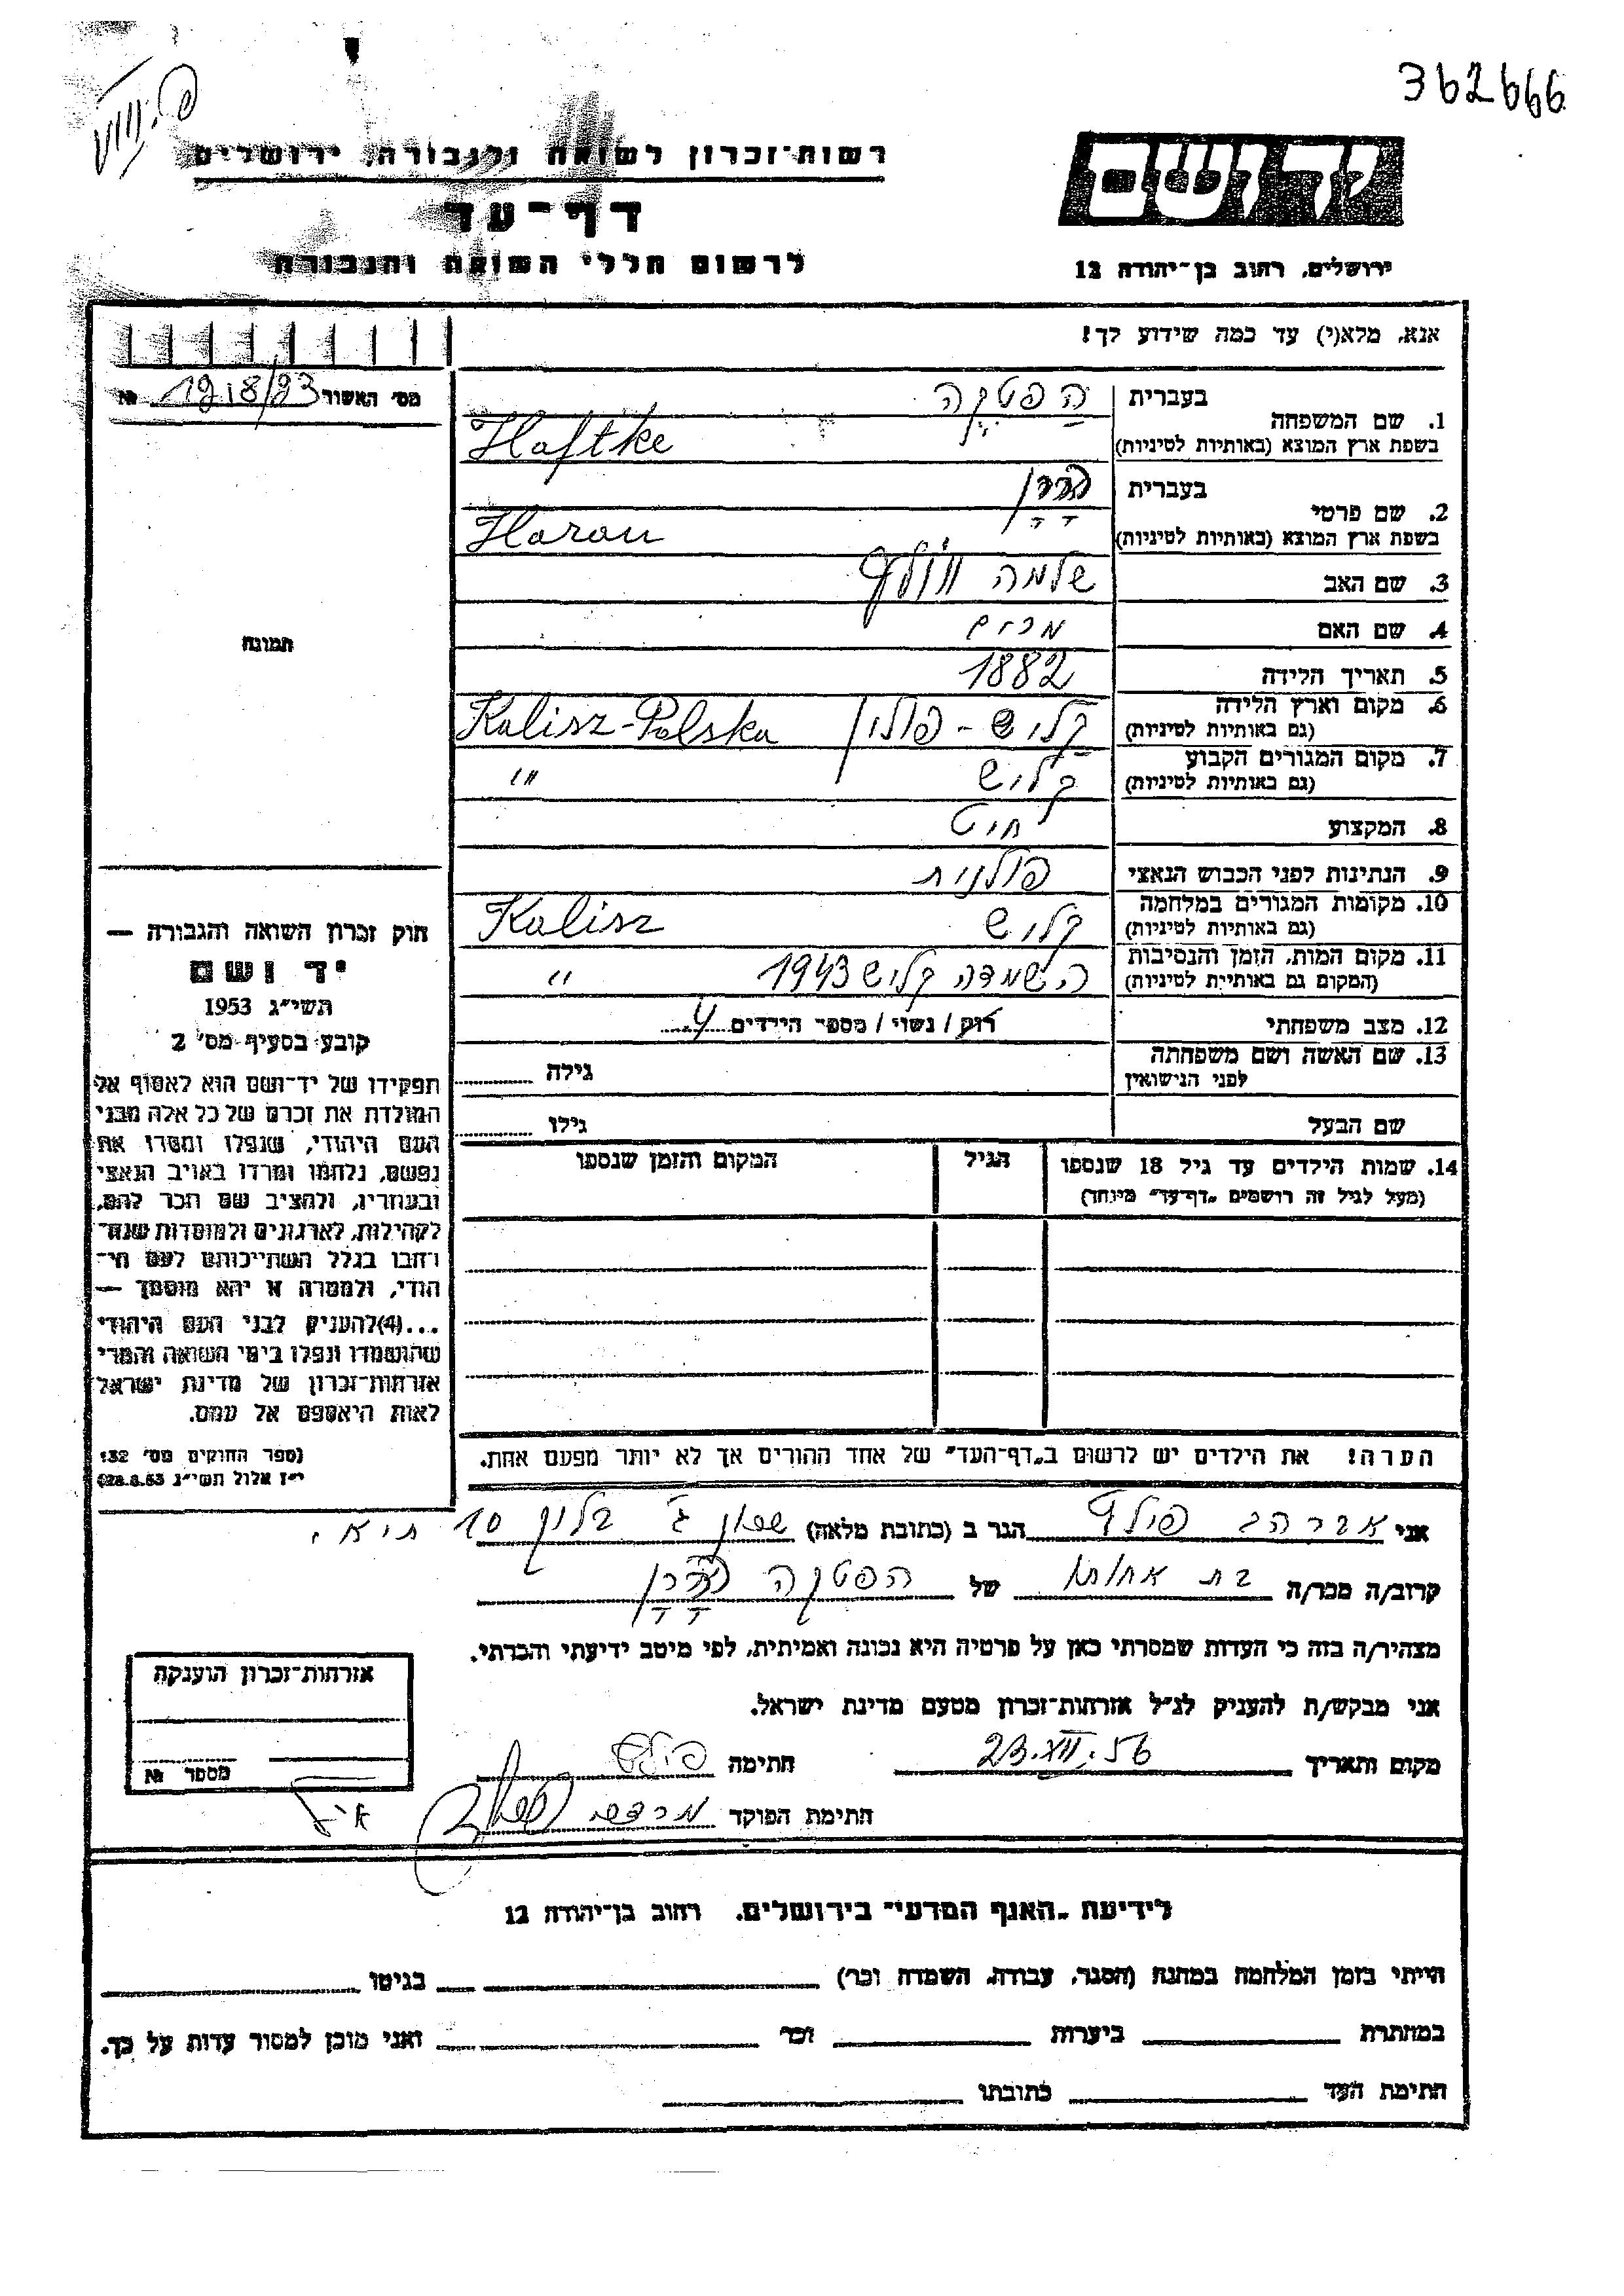 362666
רשות־זכרון לשואה ולגבורה, ירושלים
דף־עד
לרשום חללי השואה והגבורה
יד ושם
ירושלים, רחוב בן־יהודה 12
אנא, מלא(י) עד כמה שידוע לך!
מס׳ האשור 1218/23 №
1. שם המשפחה בעברית הפטקה
בשפת ארץ המוצא (באותיות לטיניות) Haftke
2. שם פרטי בעברית
בשפת ארץ המוצא (באותיות לטיניות) Haron
3. שם האב שלמה וולף
4. שם האם מרים
5. תאריך הלידה 1882
6. מקום וארץ הלידה קליש - פולין Kalisz-Polska
(גם באותיות לטיניות)
7. מקום המגורים הקבוע קליש "
(גם באותיות לטיניות)
8. המקצוע חייט
9. הנתינות לפני הכבוש הנאצי פולנית
10. מקומות המגורים במלחמה קליש Kalisz
(גם באותיות לטיניות)
11. מקום המות, הזמן והנסיבות השמדה קליש 1943 "
(המקום גם באותיות לטיניות)
12. מצב משפחתי רווק / נשוי / מספר הילדים 4
13. שם האשה ושם משפחתה גילה
לפני הנישואין
שם הבעל גילו
14. שמות הילדים עד גיל 18 שנספו הגיל המקום והזמן שנספו
(מעל לגיל זה רושמים „דף־עד״ מיוחד)
הערה! את הילדים יש לרשום ב„דף־העד״ של אחד ההורים אך לא יותר מפעם אחת.
תמונה
חוק זכרון השואה והגבורה —
יד ושם
תשי״ג 1953
קובע בסעיף מס׳ 2
תפקידו של יד־ושם הוא לאסוף אל
המולדת את זכרם של כל אלה מבני
העם היהודי, שנפלו ומסרו את
נפשם, נלחמו ומרדו באויב הנאצי
ובעוזריו, ולהציב שם וזכר להם,
לקהילות, לארגונים ולמוסדות שנח־
רבו בגלל השתייכותם לעם הי־
הודי, ולמטרה זו יהא מוסמך —
...(4) להעניק לבני העם היהודי
שהושמדו ונפלו בימי השואה והמרי
אזרחות־זכרון של מדינת ישראל
לאות היאספם אל עמם.
(ספר החוקים מס׳ 132
י״ז אלול תשי״ג 28.8.53)
אני אברהם פולק הגר ב (כתובת מלאה) שכון ג׳ בלוק 10
קרוב/ה מכר/ה בת אחותו של הפטקה
מצהיר/ה בזה כי העדות שמסרתי כאן על פרטיה היא נכונה ואמיתית, לפי מיטב ידיעתי והכרתי.
אני מבקש/ת להעניק לנ״ל אזרחות־זכרון מטעם מדינת ישראל.
מקום ותאריך 23.XII.56 חתימה
חתימת הפוקד מרדכי
אזרחות־זכרון הוענקה
מספר №
לידיעת „האגף המדעי״ בירושלים, רחוב בן־יהודה 12
הייתי בזמן המלחמה במחנה (הסגר, עבודה, השמדה וכו׳) בגיטו
במחתרת ביערות וכו׳ ואני מוכן למסור עדות על כך.
חתימת העד כתובתו